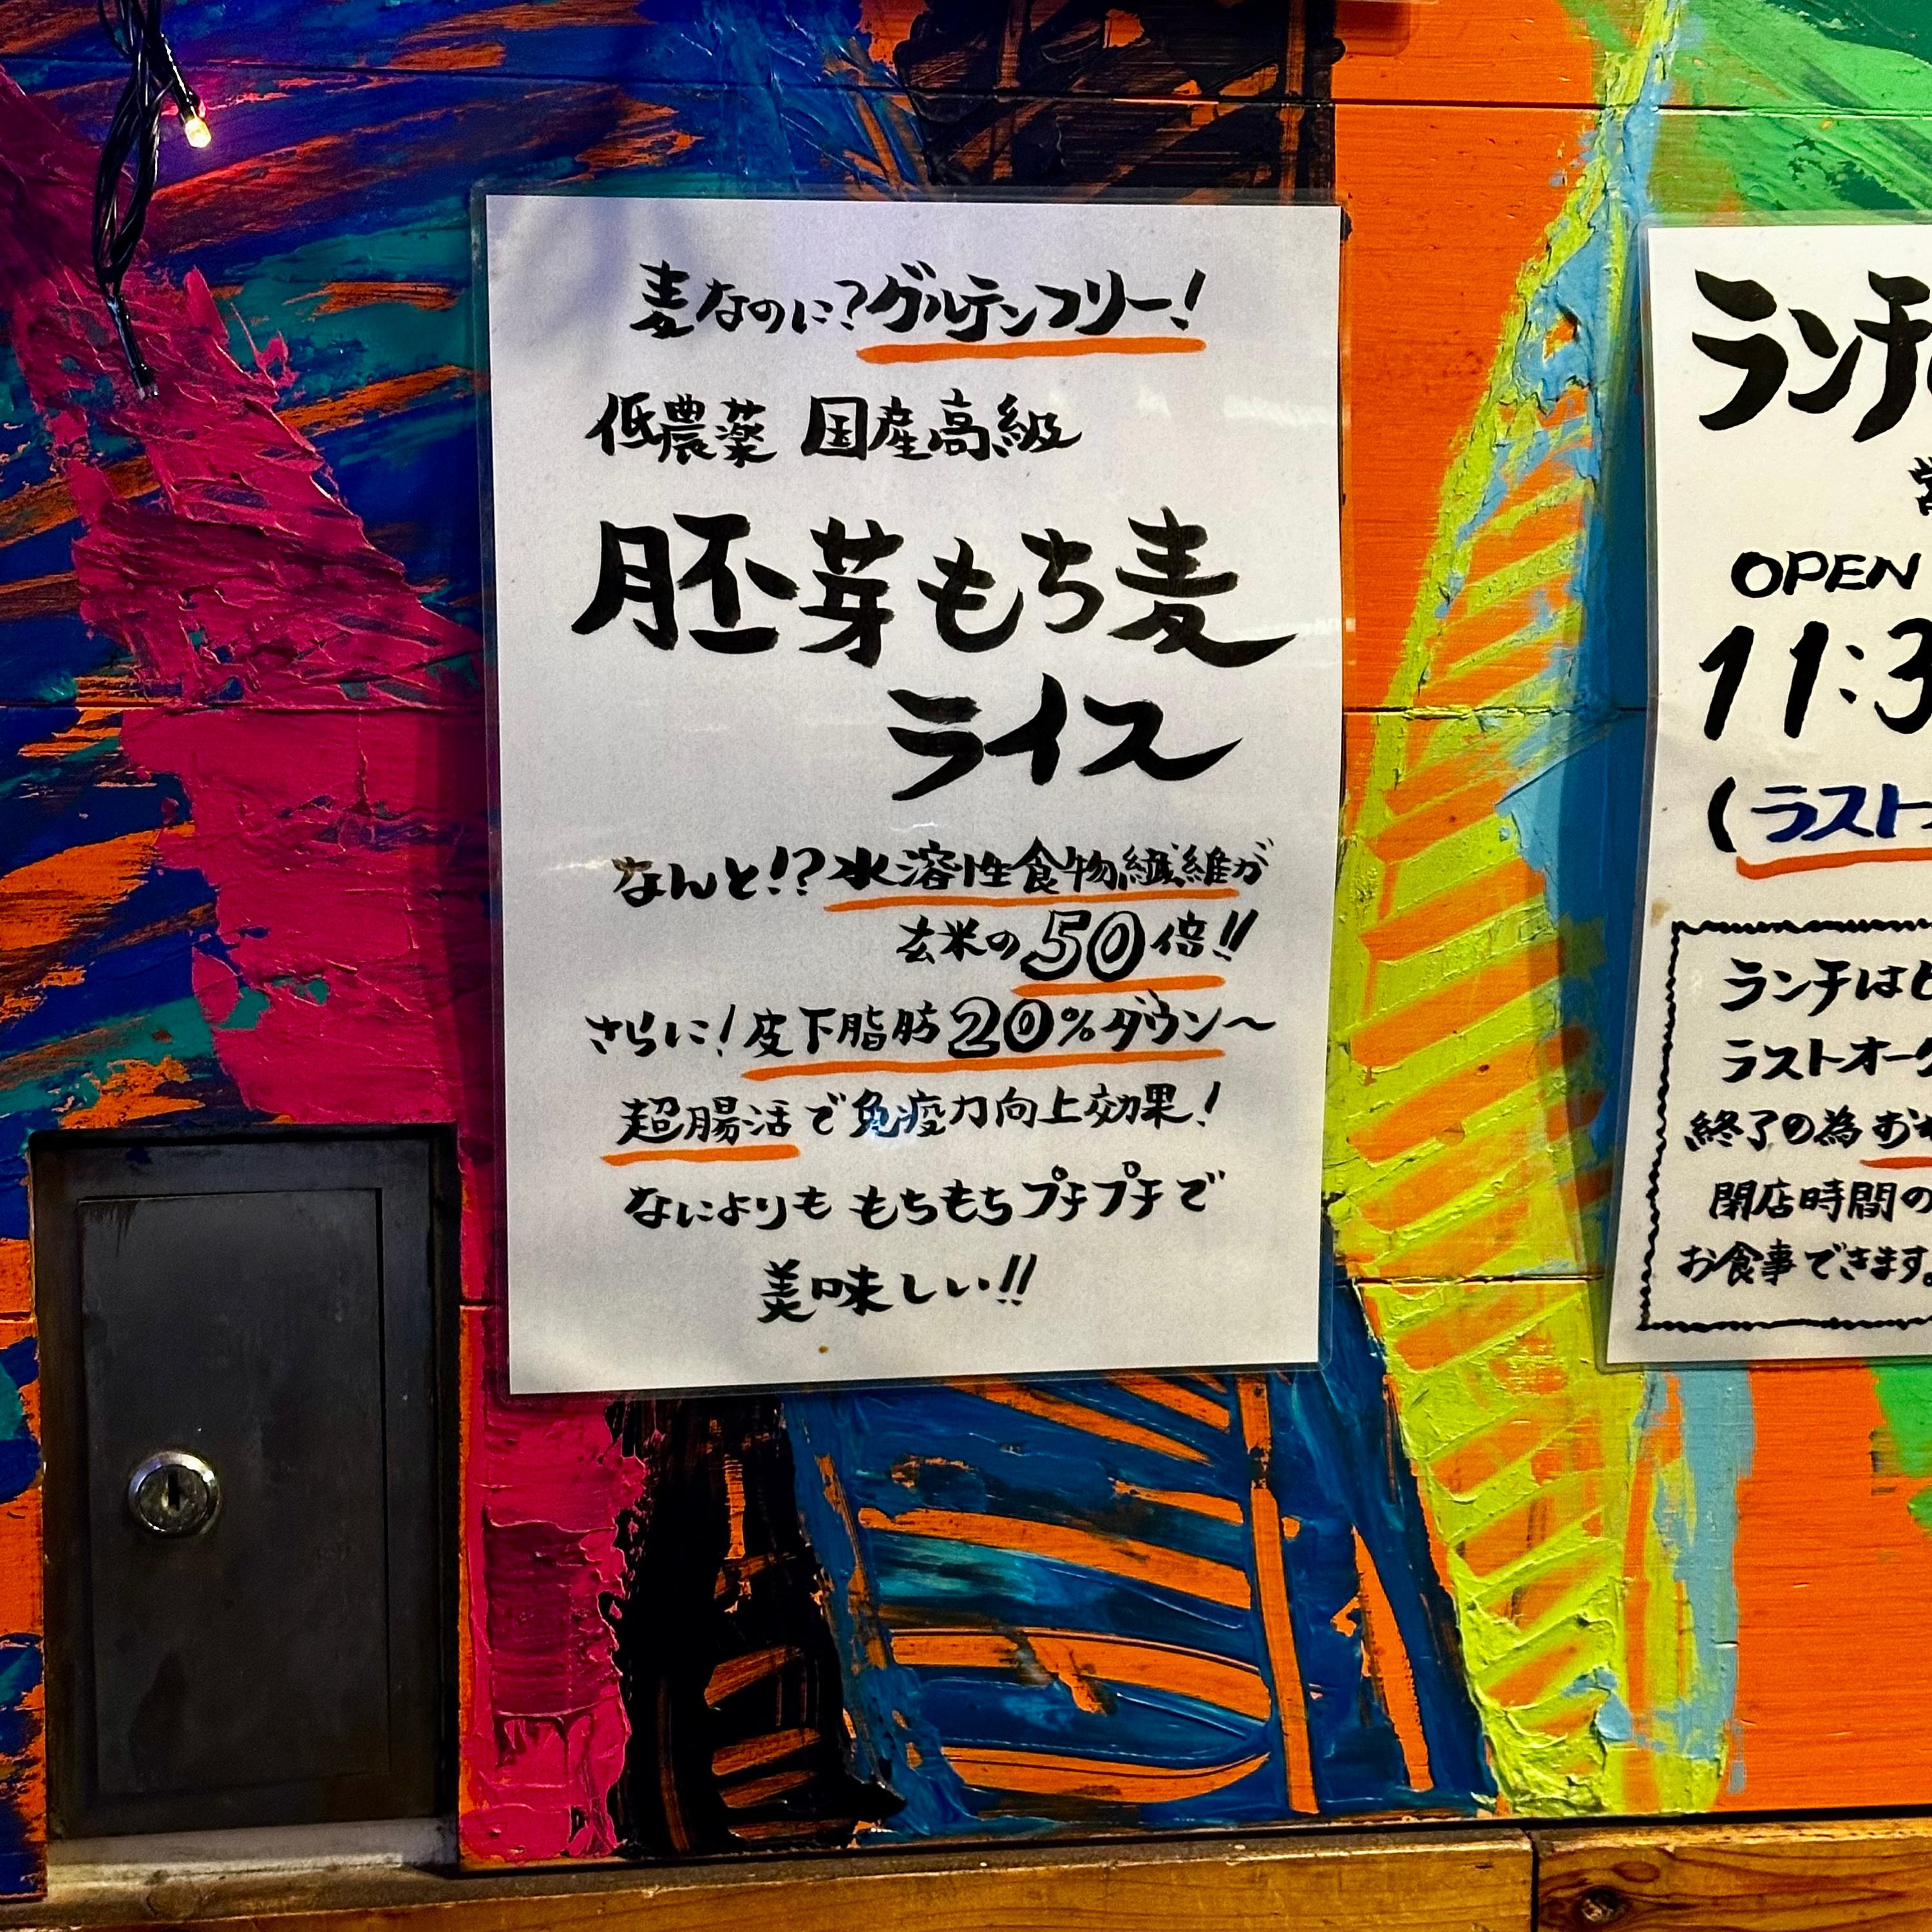 麦なのに?グルテンフリー!
低農薬 国産高級
胚芽もち麦
ライス
なんと!?水溶性食物繊維が
玄米の50倍!!
さらに!皮下脂肪20%ダウン〜
超腸活で免疫力向上効果!
なによりも もちもちプチプチで
美味しい!!
ランチ
OPEN
11:3
(ラスト
ランチは
ラストオー
終了の為
閉店時間の
お食事できます。